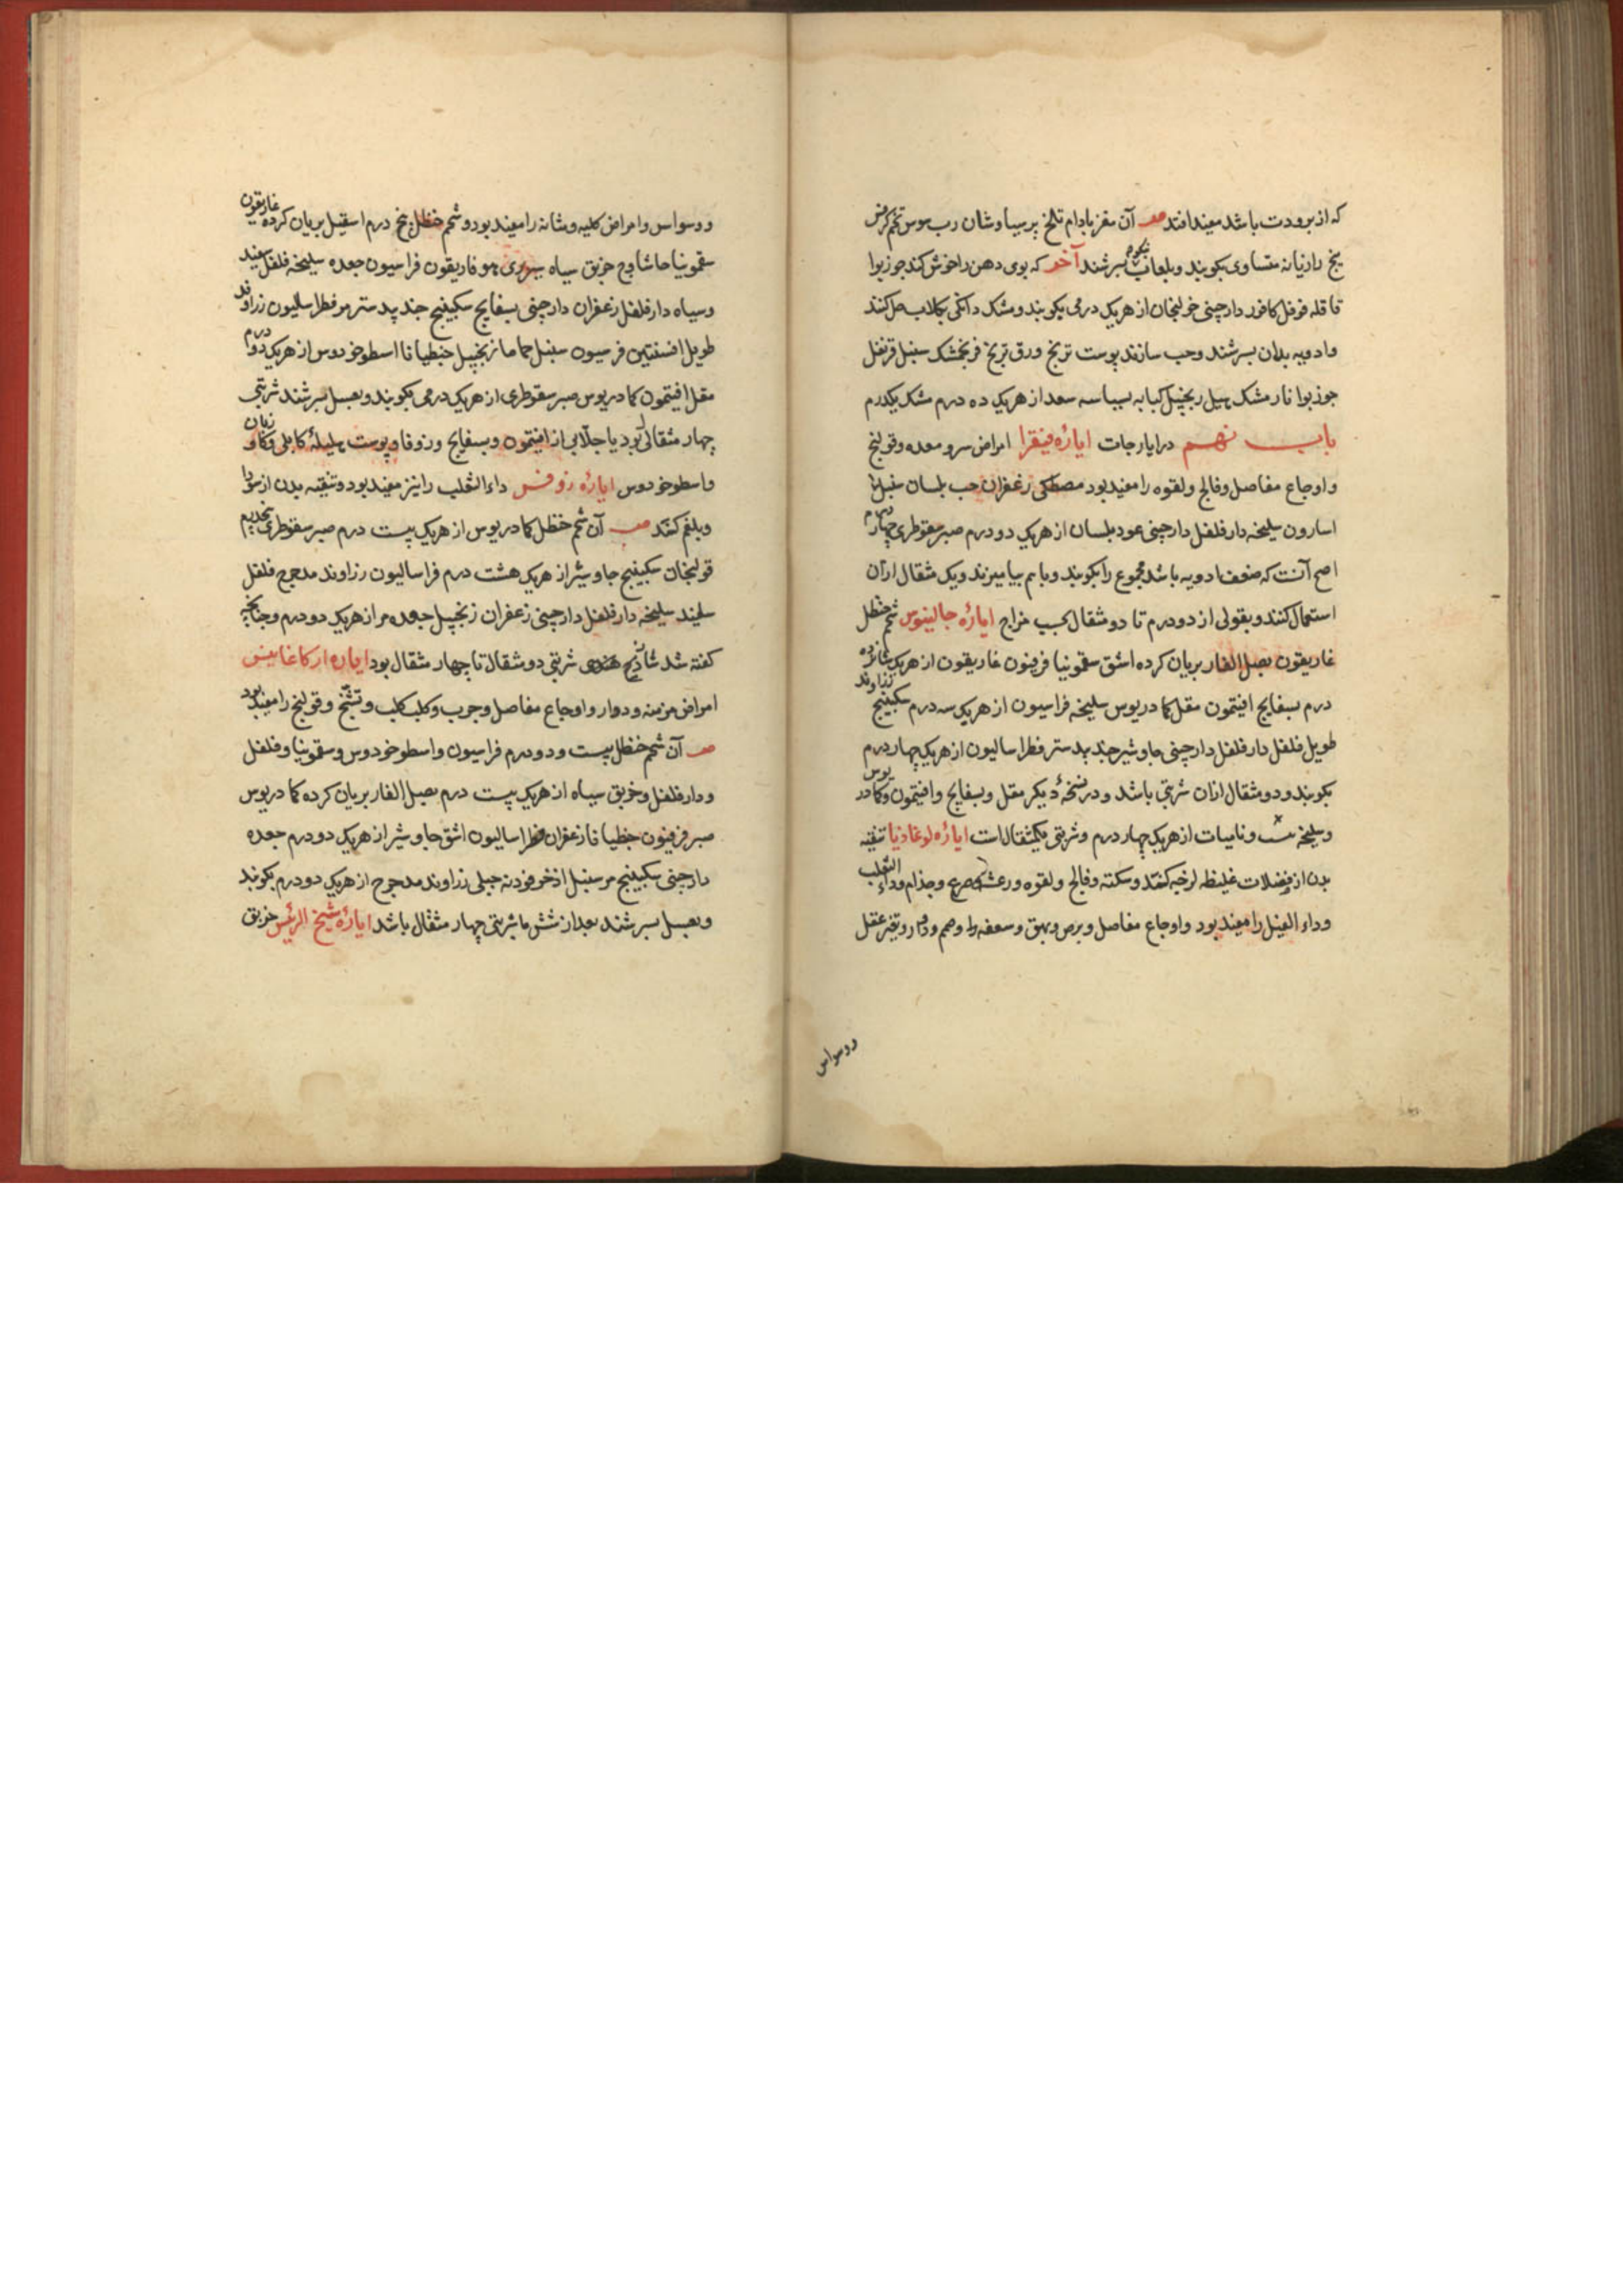 که از برودت باشد مفید افتد صفت آن مغز بادام تلخ پرسیاوشان رب سوس تخم کرفس
بیخ رازیانه متساوی بکوبند و بلعاب بسرشند آخر که بوی دهن را خوش کند جوزبوا
قاقله قرنفل کافور دارچینی خولنجان از هریک درمی بکوبند و مشک دانگی بکلاب حل کنند
وادویه بدان بسرشند وحب سازند پوست ترنج ورق ترنج فرنجمشک سنبل قرنفل
جوزبوا نارمشک هیل زنجبیل کبابه بسباسه سعد از هریک ده درم مشک یکدرم
باب نهم در ایارجات ایارهٔ فیقرا امراض سر و معده وقولنج
و اوجاع مفاصل وفالج ولقوه را مفید بود مصطکی زعفران حب بلسان سنبل
اسارون سلیخه دارفلفل دارچینی عود بلسان از هریک دو درم صبر سقوطری چهار درم
اصح آنست که ضعف ادویه باشد مجموع را بکوبند وباهم بیامیزند ویک مثقال ازان
استعمال کنند وبقولی از دو درم تا دو مثقال بحسب مزاج ایارهٔ جالینوس شحم حنظل
غاریقون بصل الفار بریان کرده اشق سقمونیا فربیون غاریقون از هریک شانزده
درم بسفایج افتیمون مقل کمادریوس سلیخه فراسیون از هریک سه درم سکبینج زراوند
طویل فلفل دارفلفل دارچینی جاوشیر جندبیدستر فطراسالیون از هریک چهار درم
بکوبند ودو مثقال ازان شربتی باشد و در نسخهٔ دیگر مقل وبسفایج وافتیمون وکمادریوس
وسلیخه ونامیسات از هریک چهار درم وشربتی یکمثقالست ایارهٔ لوغاذیا تنقیه
بدن از فضلات غلیظه لزجه کنند وسکته وفالج ولقوه ورعشه وصرع وجذام وداء الثعلب
وداء الفیل را مفید بود واوجاع مفاصل وبرص وبهق وسعفه را وصمم ودوار وتغیر عقل
ووسواس
ووسواس وامراض کلیه ومثانه را مفید بود وشحم حنظل پنج درم اسقیل بریان کرده غاریقون
سقمونیا حاشا وج خربق سیاه هوفاریقون فراسیون جعده سلیخه فلفل سفید
وسیاه دارفلفل زعفران دارچینی بسفایج سکبینج جندبیدستر مر فطراسالیون زراوند
طویل افسنتین فرسیون سنبل حماما زنجبیل جنطیانا اسطوخودوس از هریک دو درم
مقل افتیمون کمادریوس صبر سقوطری از هریک درمی بکوبند وبعسل بسرشند شربتی
چهار مثقال بود با جلابی از افتیمون وبسفایج وزوفا وپوست هلیلهٔ کابلی وکاوزبان
واسطوخودوس ایارهٔ روفس داء الثعلب را نیز مفید بود وتنقیه بدن از سودا
وبلغم کنند صفت آن شحم حنظل کمادریوس از هریک بیست درم صبر سقوطری
قولنجان سکبینج جاوشیر از هریک هشت درم فراسالیون زراوند مدحرج فلفل
سفید سلیخه دارفلفل دارچینی زعفران زنجبیل جعده مر از هریک دو درم وچنانچه
کفته شد شربتی دو مثقال تا چهار مثقال بود ایارهٔ ارکاغانیس
امراض مزمنه ودوار واوجاع مفاصل وجرب وکلب کلب وتشنج وقولنج را مفید بود
صفت آن شحم حنظل بیست ودو درم فراسیون واسطوخودوس وسقمونیا وفلفل
ودارفلفل وخربق سیاه از هریک بیست درم بصل الفار بریان کرده کمادریوس
صبر فرفیون جنطیانا زعفران فطراسالیون اشق جاوشیر از هریک دو درم جعده
دارچینی سکبینج مر سنبل اذخر فودنه جبلی زراوند مدحرج از هریک دو درم بکوبند
وبعسل بسرشند بعد از شش ماه شربتی چهار مثقال باشد ایارهٔ شیخ الرئیس خربق